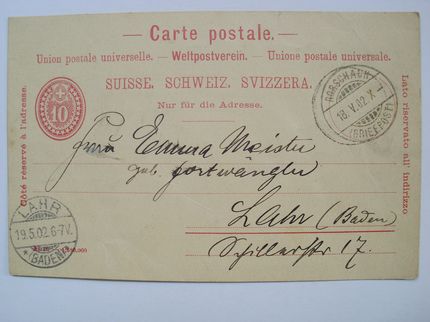 — Carte postale. —
Union postale universelle. — Weltpostverein. — Unione postale universale.
SUISSE. SCHWEIZ. SVIZZERA.
Nur für die Adresse.
Côté réservé à l'adresse.
Lato riservato all' indirizzo
10
RORSCHACH
18. V. 02. X–
(BRIEFPOST)
Frau Emma Meister
geb. Fortwängler
Lahr (Baden)
Schillerstr 17.
LAHR
19.5.02.6-7V.
* (BADEN)